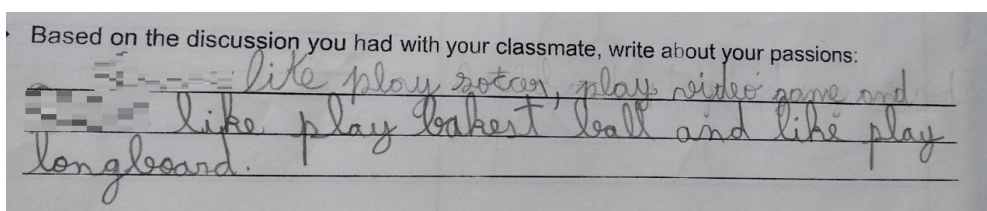 Based on the discussion you had with your classmate, write about your passions:
like play sotcer, play video game and
like play bakest ball and like play
longboard.